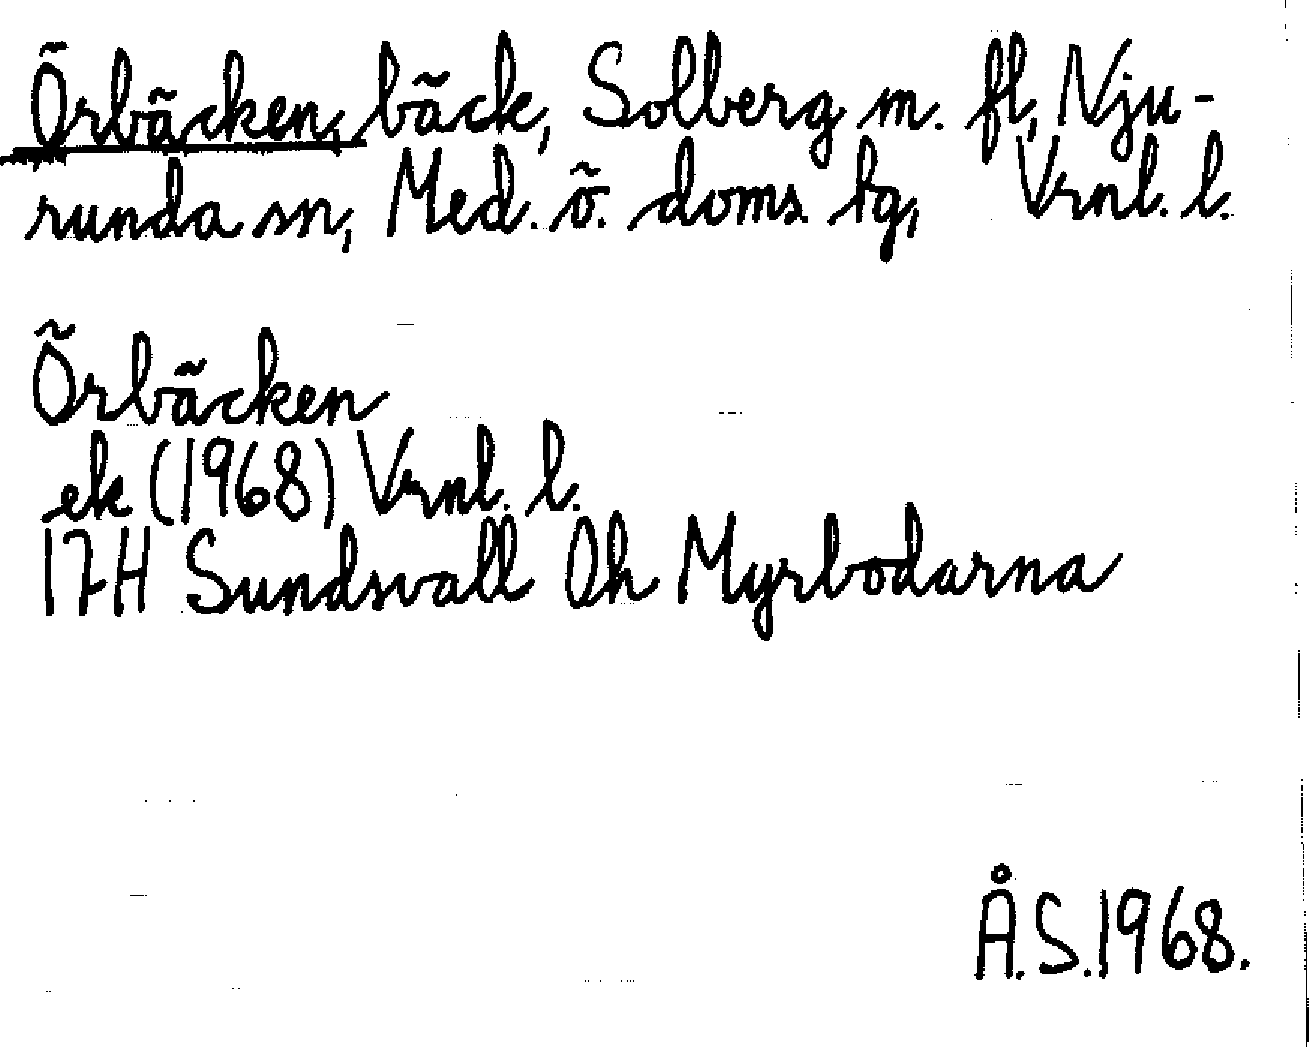 Örbäcken, bäck, Solberg m. fl, Nju-
runda sn, Med. ö. doms. tg, Vrnl. l.
Örbäcken
ek (1968) Vrnl. l.
17H Sundsvall 0h Myrbodarna
Å.S.1968.